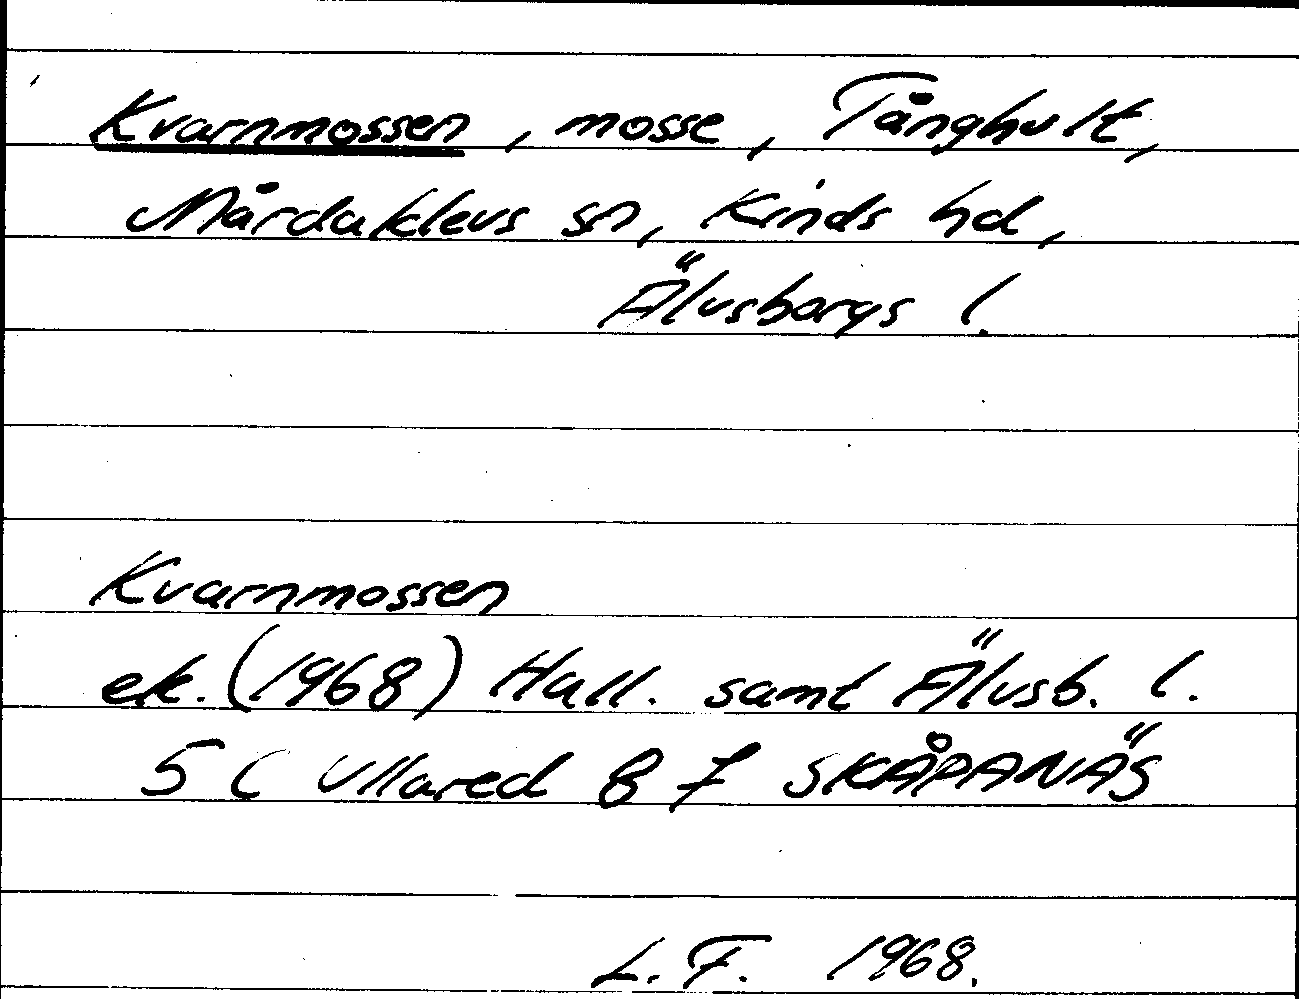 Kvarnmossen, mosse, Tånghult,
Mårdaklevs sn, Kinds hd,
Älvsborgs l.
Kvarnmossen
ek. (1968) Hall. samt Älvsb. l.
5 C Ullared 8 f SKÅPANÄS
L. F. 1968.